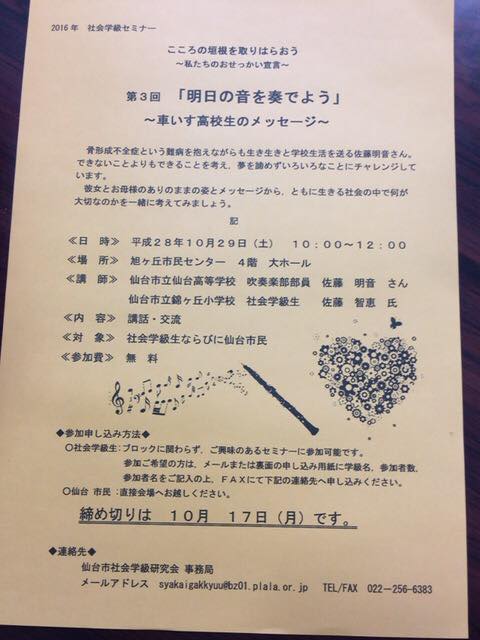 2016年　社会学級セミナー
こころの垣根を取りはらおう
～私たちのおせっかい宣言～
第３回　「明日の音を奏でよう」
～車いす高校生のメッセージ～
骨形成不全症という難病を抱えながらも生き生きと学校生活を送る佐藤明音さん。
できないことよりもできることを考え，夢を諦めずいろいろなことにチャレンジして
います。
彼女とお母様のありのままの姿とメッセージから，ともに生きる社会の中で何が
大切なのかを一緒に考えてみましょう。
記
≪日　時≫　平成２８年１０月２９日（土）　１０：００～１２：００
≪場　所≫　旭ヶ丘市民センター　４階　大ホール
≪講　師≫　仙台市立仙台高等学校　吹奏楽部部員　佐藤　明音　さん
仙台市立錦ヶ丘小学校　社会学級生　　佐藤　智恵　氏
≪内　容≫　講話・交流
≪対　象≫　社会学級生ならびに仙台市民
≪参加費≫　無　料
◆参加申し込み方法◆
○社会学級生：ブロックに関わらず，ご興味のあるセミナーに参加可能です。
参加ご希望の方は，メールまたは裏面の申し込み用紙に学級名，参加者数，
参加者名をご記入の上，ＦＡＸにて下記の連絡先へ申し込みください。
○仙台 市民：直接会場へお越しください。
締め切りは　１０月　１７日（月）です。
◆連絡先◆
仙台市社会学級研究会　事務局
メールアドレス　syakaigakkyuu@bz01.plala.or.jp　TEL/FAX　022-256-6383